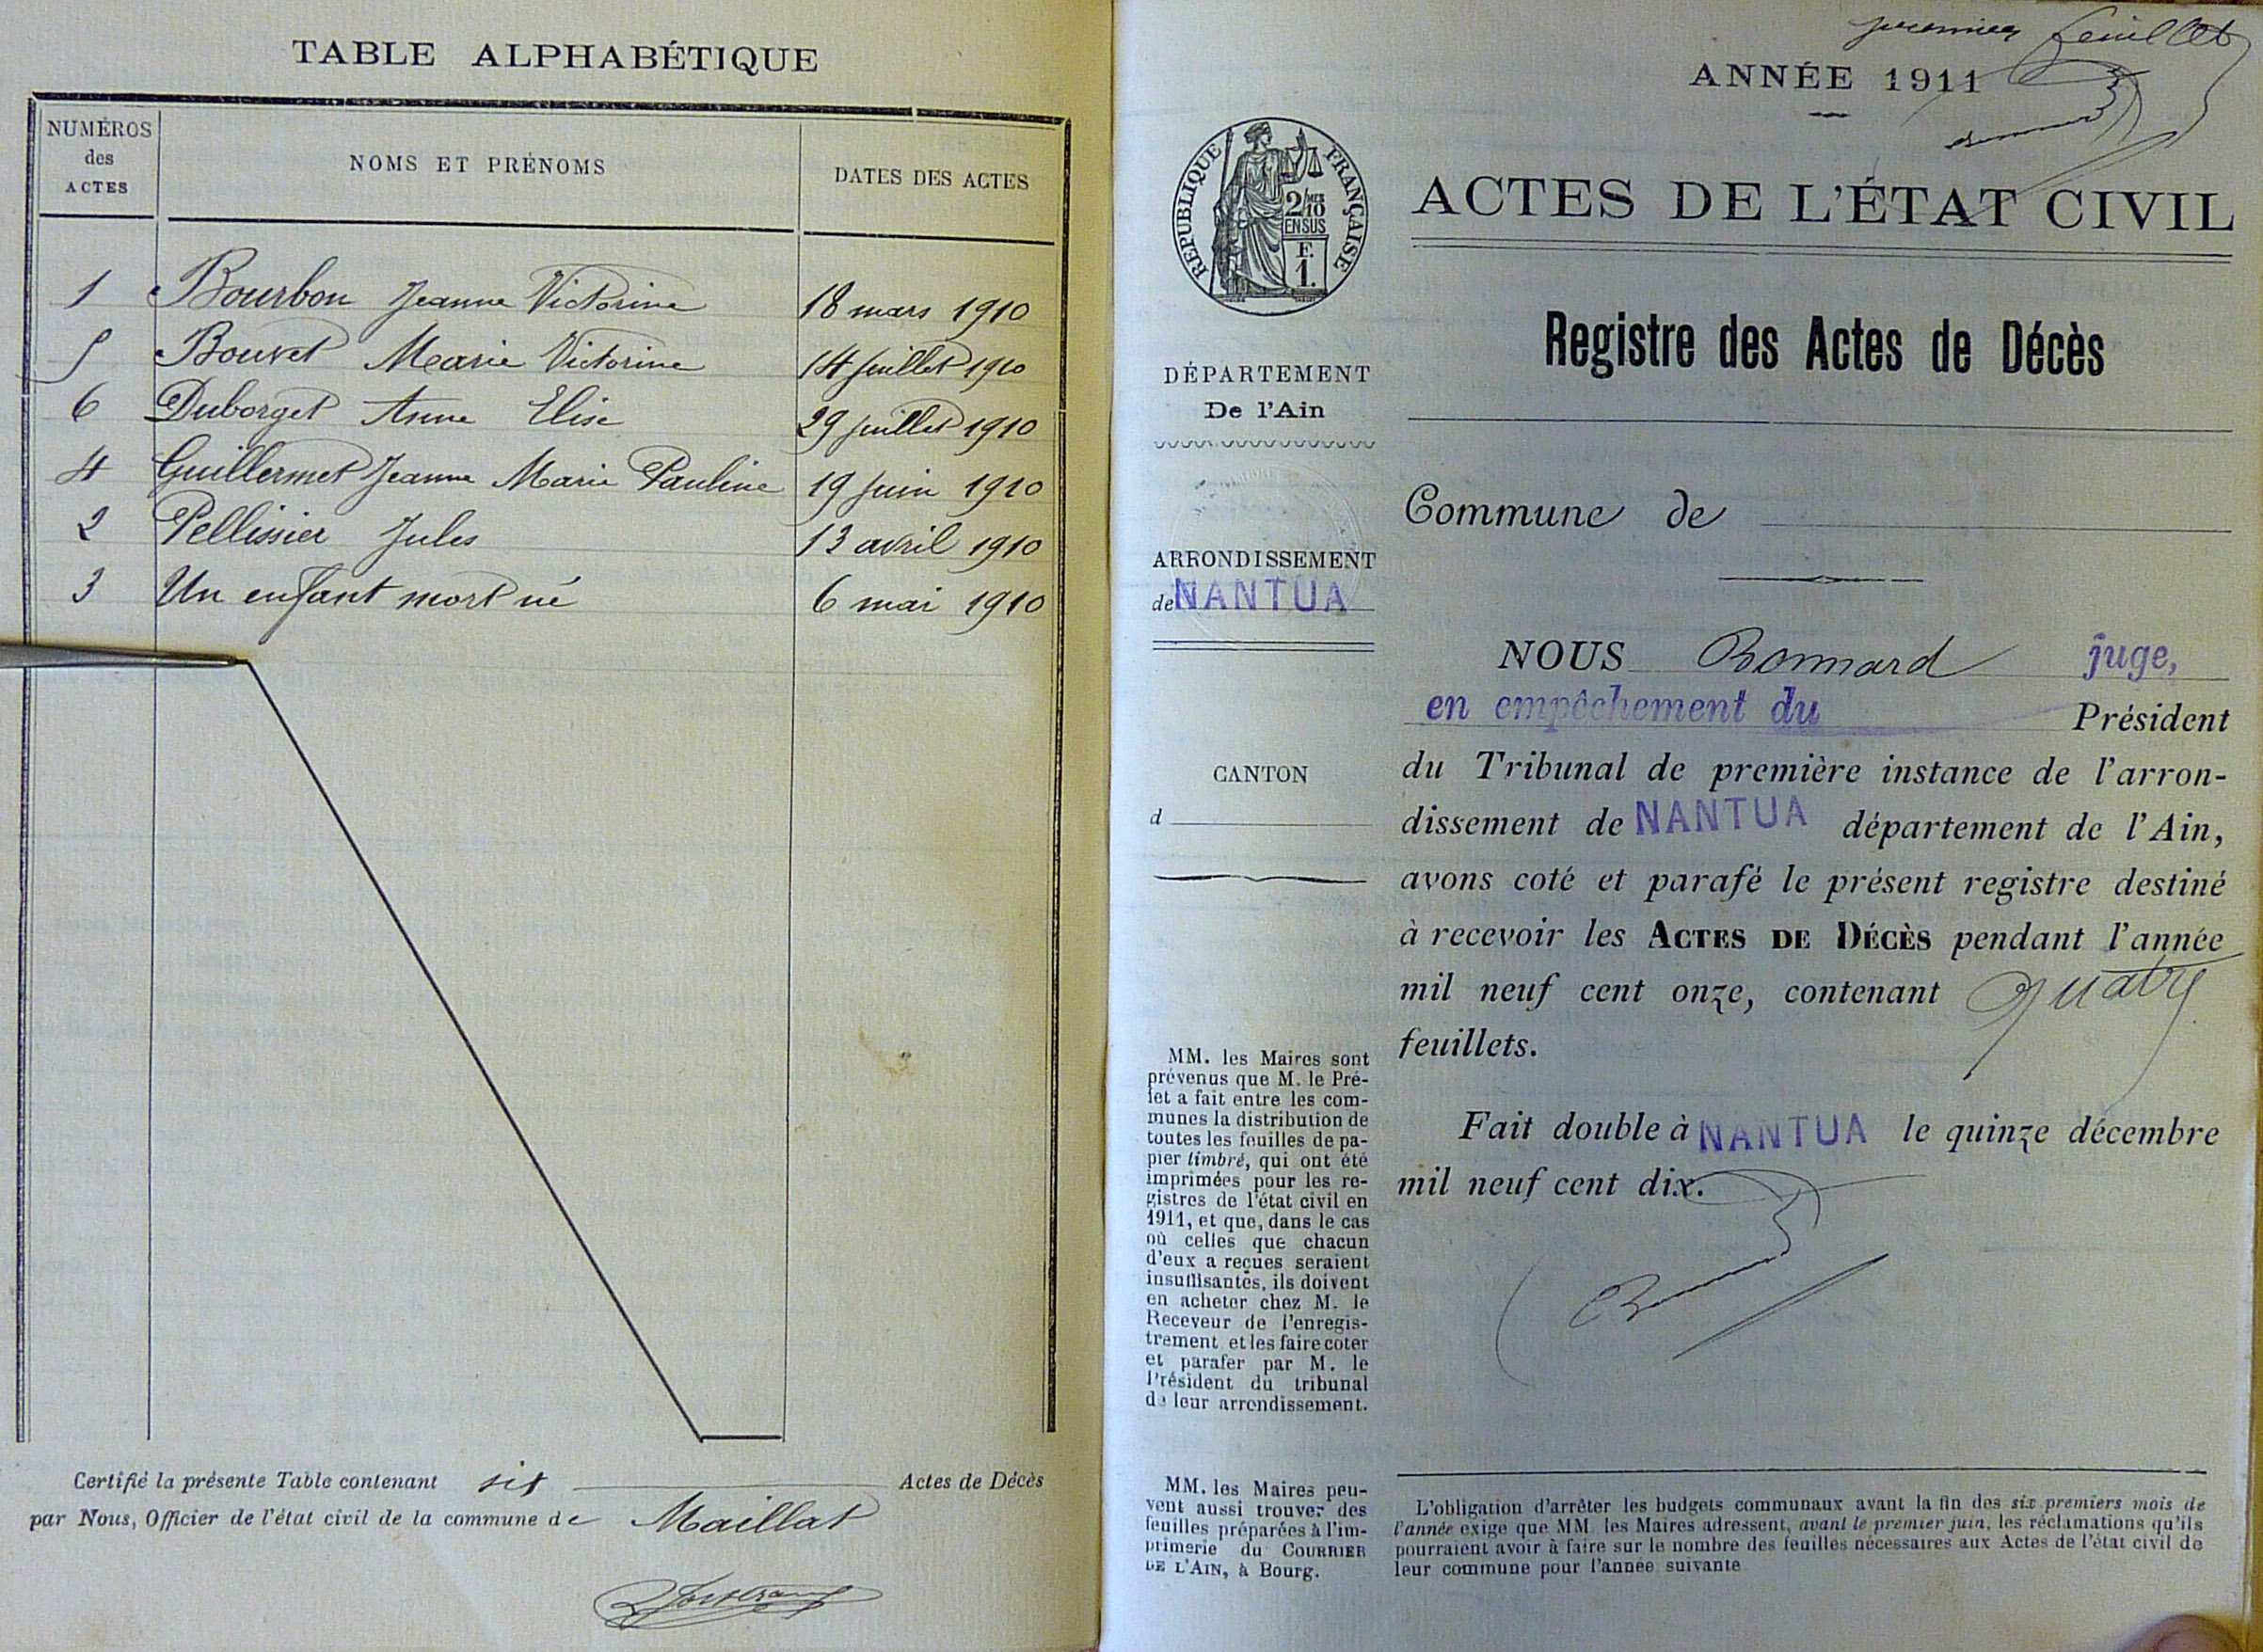 TABLE ALPHABÉTIQUE
NUMÉROS
des
ACTES
NOMS ET PRÉNOMS
DATES DES ACTES
1 Bourbon Jeanne Victorine 18 mars 1910
5 Bouvet Marie Victorine 14 juillet 1910
6 Duborget Anne Elise 29 juillet 1910
4 Guillermet Jeanne Marie Pauline 19 juin 1910
2 Pellissier Jules 13 avril 1910
3 Un enfant mort né 6 mai 1910
Certifié la présente Table contenant six Actes de Décès
par Nous, Officier de l'état civil de la commune de Maillat
premier feuillet
ANNÉE 1911
RÉPUBLIQUE FRANÇAISE
2/10 MES
EN SUS
F.
1.
ACTES DE L'ÉTAT CIVIL
Registre des Actes de Décès
DÉPARTEMENT
De l'Ain
Commune de
ARRONDISSEMENT
de NANTUA
CANTON
d
NOUS Bonnard juge,
en empêchement du Président
du Tribunal de première instance de l'arron-
dissement de NANTUA département de l'Ain,
avons coté et parafé le présent registre destiné
à recevoir les ACTES DE DÉCÈS pendant l'année
mil neuf cent onze, contenant quatre
feuillets.
Fait double à NANTUA le quinze décembre
mil neuf cent dix.
MM. les Maires sont
prévenus que M. le Pré-
fet a fait entre les com-
munes la distribution de
toutes les feuilles de pa-
pier timbré, qui ont été
imprimées pour les re-
gistres de l'état civil en
1911, et que, dans le cas
où celles que chacun
d'eux a reçues seraient
insuffisantes, ils doivent
en acheter chez M. le
Receveur de l'enregis-
trement et les faire coter
et parafer par M. le
Président du tribunal
de leur arrondissement.
MM. les Maires peu-
vent aussi trouver des
feuilles préparées à l'im-
primerie du COURRIER
DE L'AIN, à Bourg.
L'obligation d'arrêter les budgets communaux avant la fin des six premiers mois de
l'année exige que MM. les Maires adressent, avant le premier juin, les réclamations qu'ils
pourraient avoir à faire sur le nombre des feuilles nécessaires aux Actes de l'état civil de
leur commune pour l'année suivante